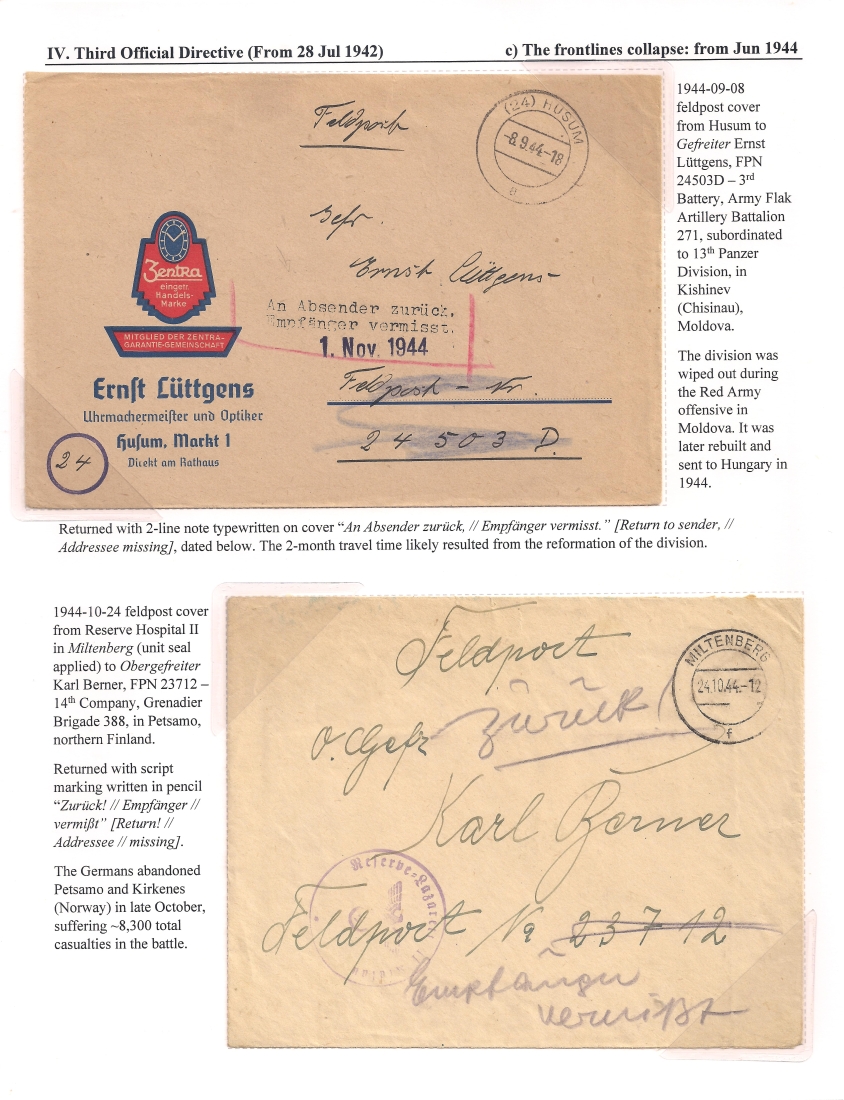 IV. Third Official Directive (From 28 Jul 1942) c) The frontlines collapse: from Jun 1944
Feldpost
(24) HUSUM
-8.9.44-18
a
Gefr.
Ernst Lüttgens
Zentra
eingetr.
Handels-
Marke
MITGLIED DER ZENTRA-
GARANTIE-GEMEINSCHAFT
An Absender zurück,
Empfänger vermisst.
1. Nov. 1944
Feldpost – Nr.
24503 D.
Ernst Lüttgens
Uhrmachermeister und Optiker
Husum, Markt 1
Direkt am Rathaus
24
1944-09-08
feldpost cover
from Husum to
Gefreiter Ernst
Lüttgens, FPN
24503D – 3rd
Battery, Army Flak
Artillery Battalion
271, subordinated
to 13th Panzer
Division, in
Kishinev
(Chisinau),
Moldova.
The division was
wiped out during
the Red Army
offensive in
Moldova. It was
later rebuilt and
sent to Hungary in
1944.
Returned with 2-line note typewritten on cover “An Absender zurück, // Empfänger vermisst.” [Return to sender, //
Addressee missing], dated below. The 2-month travel time likely resulted from the reformation of the division.
1944-10-24 feldpost cover
from Reserve Hospital II
in Miltenberg (unit seal
applied) to Obergefreiter
Karl Berner, FPN 23712 –
14th Company, Grenadier
Brigade 388, in Petsamo,
northern Finland.
Returned with script
marking written in pencil
“Zurück! // Empfänger //
vermißt” [Return! //
Addressee // missing].
The Germans abandoned
Petsamo and Kirkenes
(Norway) in late October,
suffering ~8,300 total
casualties in the battle.
Feldpost
MILTENBERG
24.10.44.-12
f
O. Gefr
Zurück!
Karl Berner
Reserve-Lazarett
Feldpost Nr 23712
Empfänger
vermißt